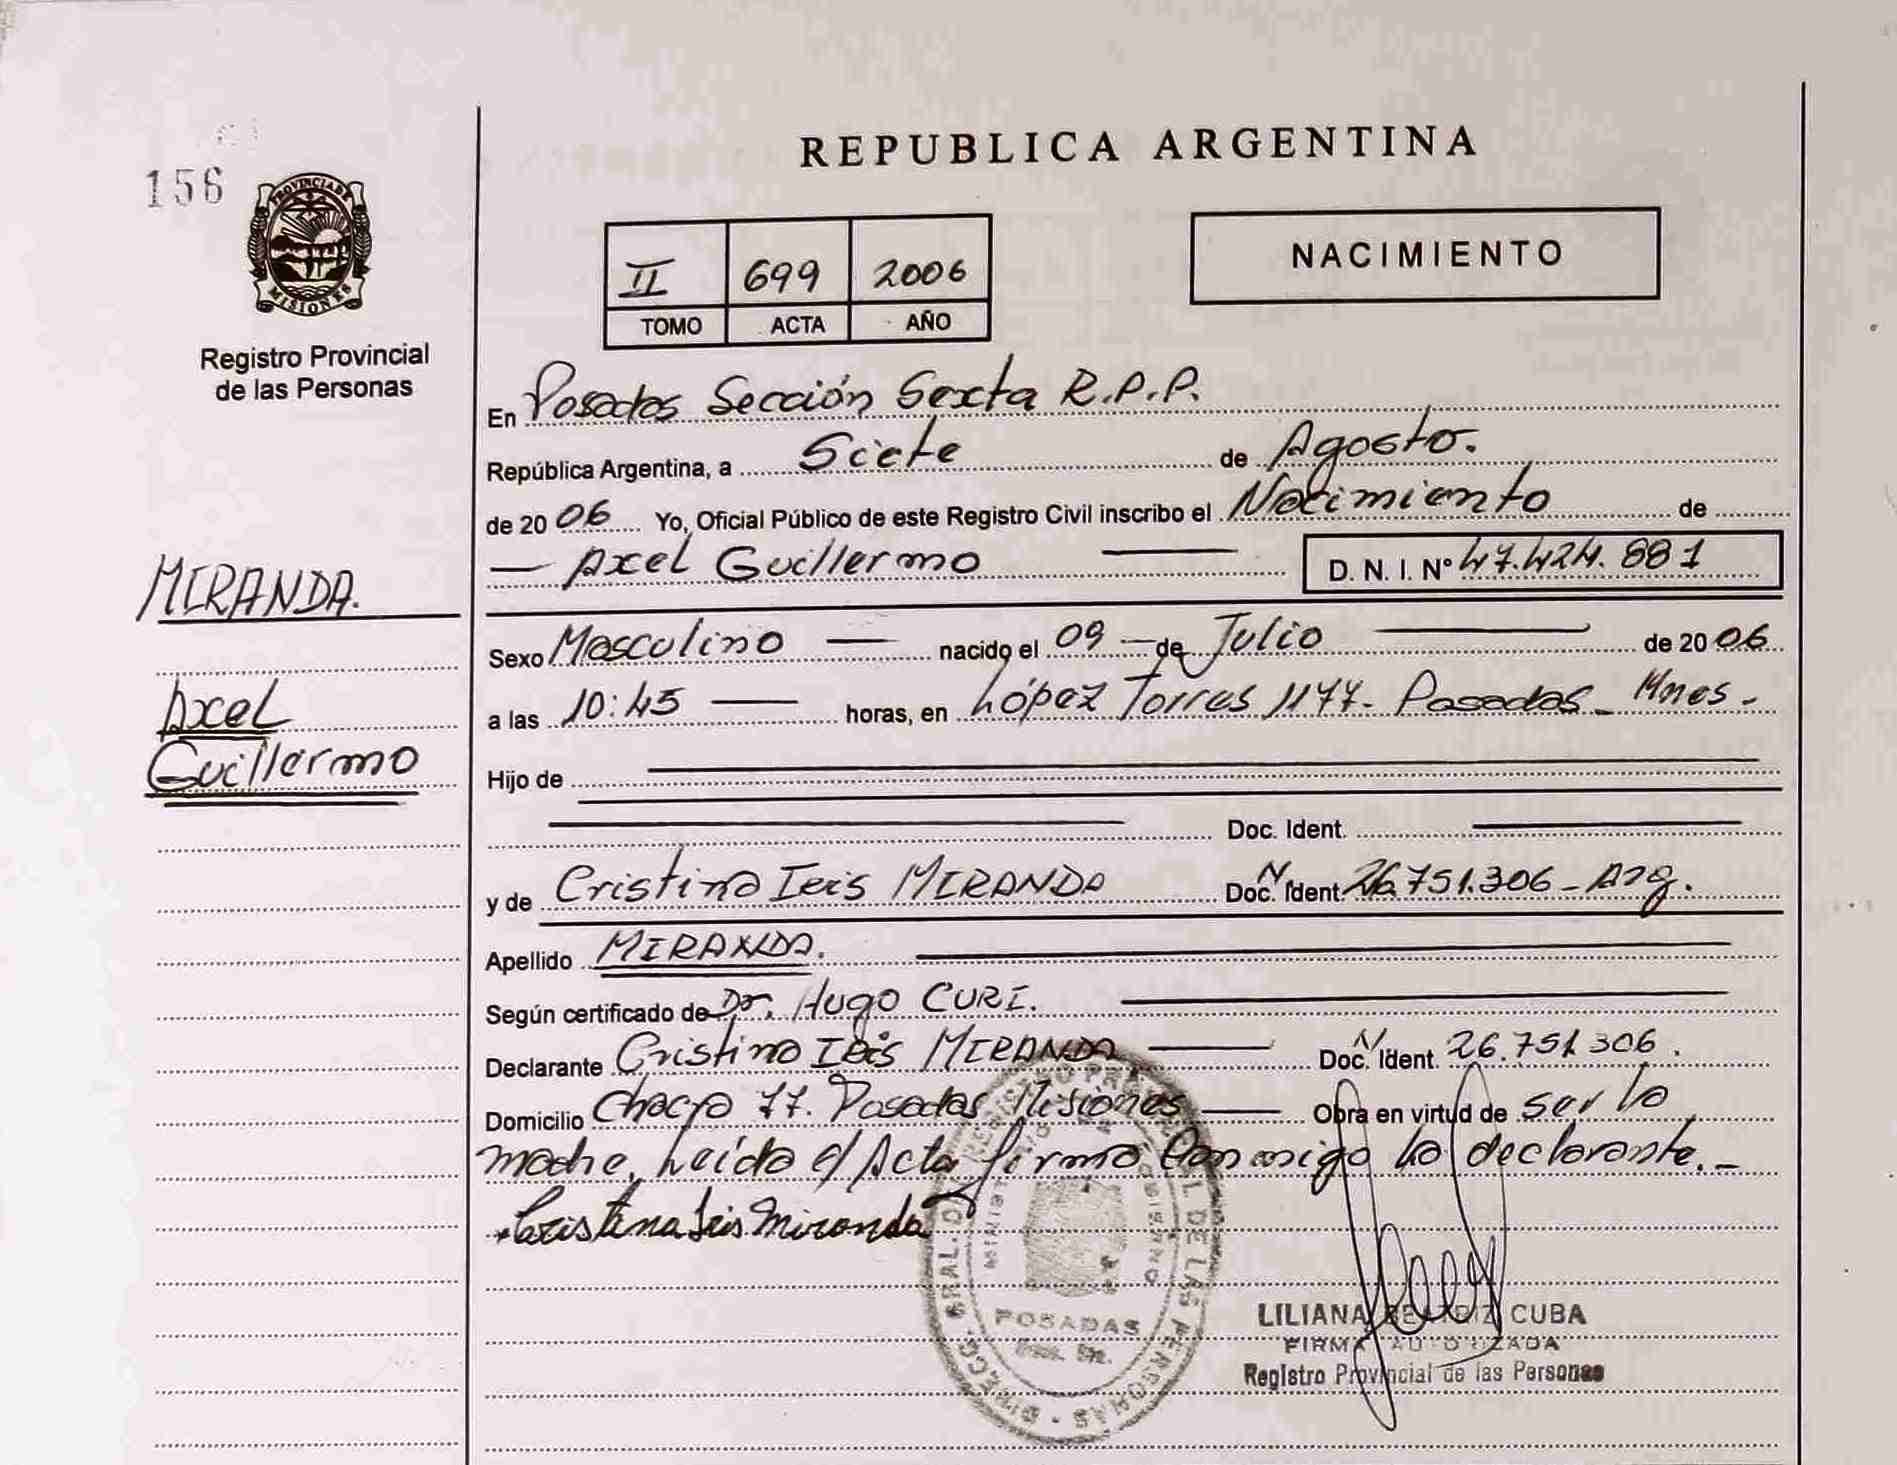 156
PROVINCIA DE
MISIONES
Registro Provincial
de las Personas
REPUBLICA ARGENTINA
II 699 2006
TOMO ACTA AÑO
NACIMIENTO
En Posadas Sección Sexta R.P.P.
República Argentina, a Siete de Agosto.
de 20 06 Yo, Oficial Público de este Registro Civil inscribo el Nacimiento de
— Axel Guillermo — D. N. I. Nº 47.424.881
MIRANDA.
Axel
Guillermo
Sexo Masculino — nacido el 09 — de Julio — de 20 06
a las 10:45 — horas, en López Torres 1177. Posadas - Mnes.
Hijo de
Doc. Ident.
y de Cristina Iris MIRANDA Doc. N Ident. 26.751.306 - Arg.
Apellido MIRANDA.
Según certificado de Dr. Hugo CURI.
Declarante Cristina Iris MIRANDA — Doc. N Ident. 26.751.306.
Domicilio Chacra 77. Posadas Misiones — Obra en virtud de ser la
madre, Leída el Acta firma conmigo la declarante.-
Cristina Iris Miranda
DIRECC. GRAL. DEL REGISTRO PROVINCIAL DE LAS PERSONAS
POSADAS
LILIANA BEATRIZ CUBA
FIRMA AUTORIZADA
Registro Provincial de las Personas